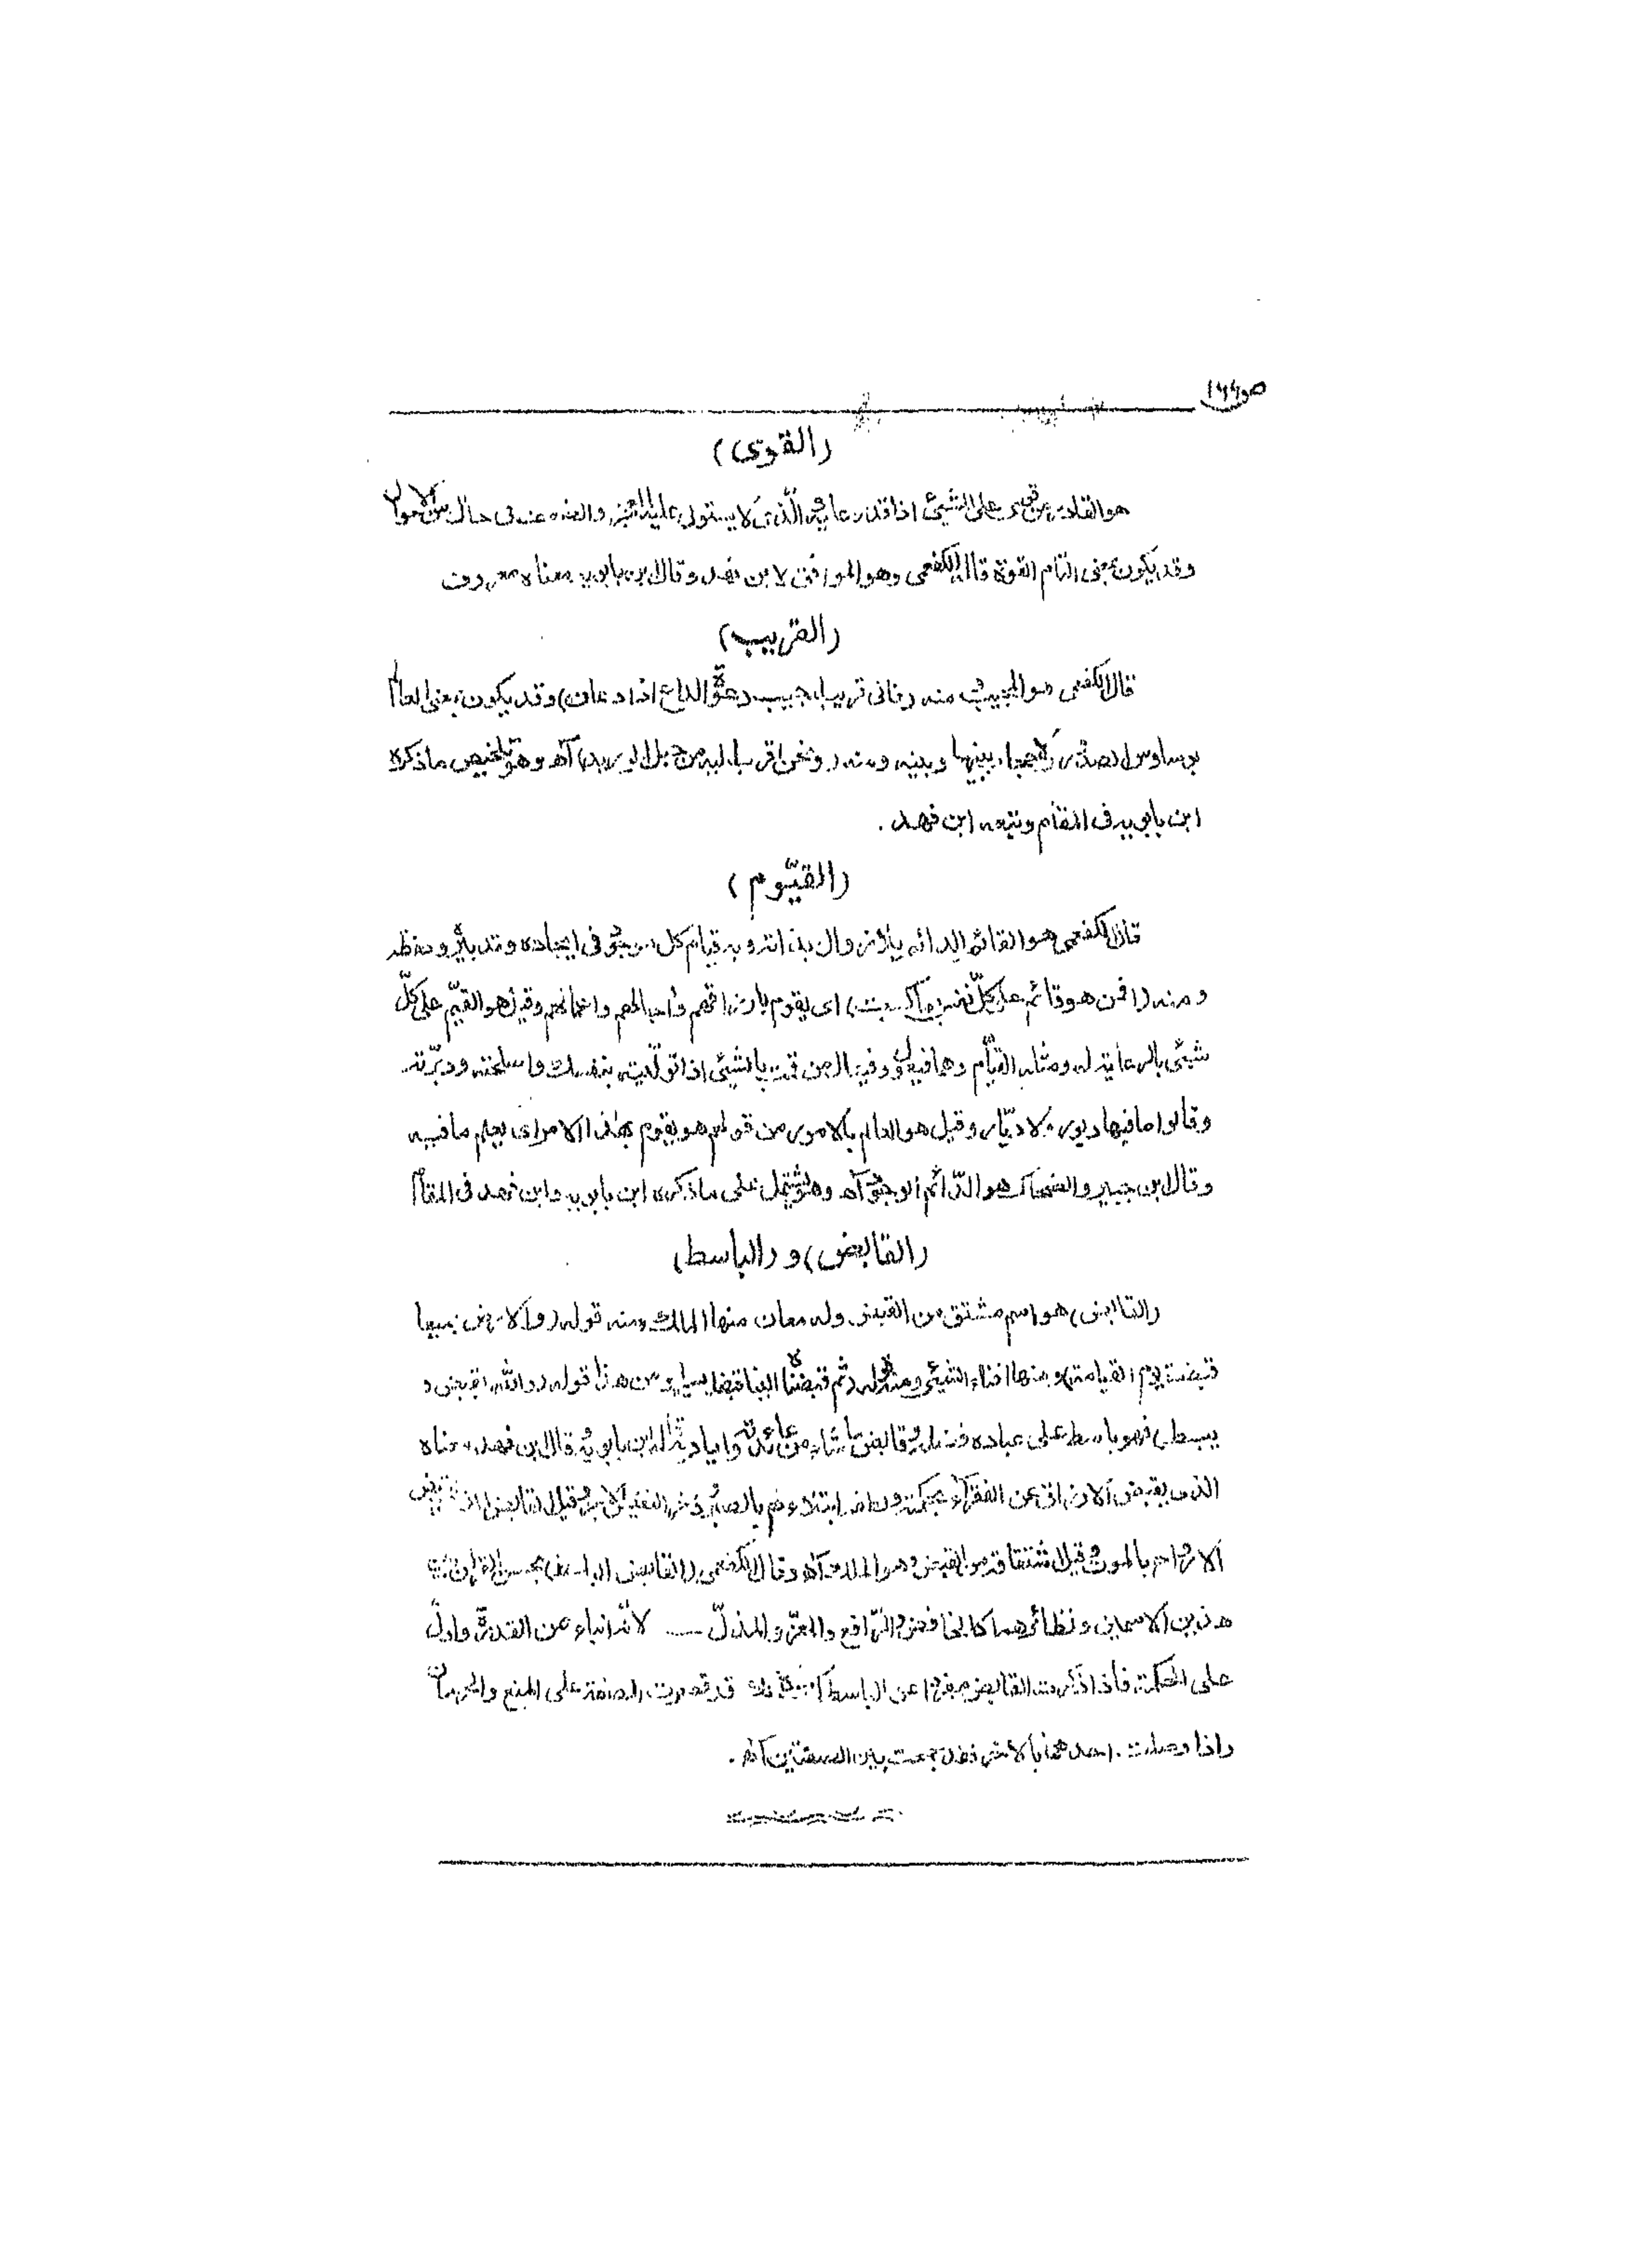 ص ١٤٤
(القوى)
هو القادر من قوى على الشيئ اذا قدر عليه و الّذى لا يستولى عليه العجز والضعف فى حال من الاحوال
وقد يكون بمعنى التام القوة قاله الكفعمى وهو الموافق لابن فهد وقال ابن بابويه معناه معروف
(القريب)
قال الكفعمى هو المجيب ومنه (فانى قريب اجيب دعوة الداع اذا دعان) وقد يكون بمعنى العالم
بوساوس الصدور لا حجاب بينها وبينه ومنه (ونحن اقرب اليه من حبل الوريد) آه وهو تلخيص ما ذكره
ابن بابويه فى المقام وتبعه ابن فهد .
(القيّوم)
قال الكفعمى هو القائم الدائم بلا زوال بذاته وبه قيام كل موجود فى ايجاده وتدبيره وحفظه
ومنه (افمن هو قائم على كلّ نفس بما كسبت) اى يقوم بارزاقهم وآجالهم واعمالهم وقيل هو القيّم على كلّ
شيئ بالرعاية له ومثله القيّام وهما فيعول وفيعال من قمت بالشيئ اذا توليته بنفسك واصلحته ودبّرته
وقالوا ما فيها ديور ولا ديّار وقيل هو العالم بالامور من قولهم هو يقوم بهذا الامر اى يعلم ما فيه
وقال ابن جبير والضحاك هو الدّائم الوجود آه وهو يشتمل على ما ذكره ابن بابويه وابن فهد فى المقام
(القابض) و (الباسط)
(القابض) هو اسم مشتق من القبض وله معان منها الملك ومنه قوله (والارض جميعا
قبضته يوم القيامة) ومنها افناء الشيئ ومنه قوله (ثم قبضناه الينا قبضا يسيرا) ومن هذا قوله (والله يقبض و
يبسط) فهو باسط على عباده فضله وقابض ما يشاء من عائدته واياديه قاله ابن بابويه وقال ابن فهد معناه
الذى يقبض الارزاق عن الفقراء بحكمته ولطفه ابتلاءهم بالصبر وقيل القابض الذى يقبض
الارواح بالموت وقيل اشتقاقه من القبض وهو الملك آه وقال الكفعمى (القابض الباسط) يحسن القران بين
هذين الاسمين ونظائرهما كالخافض والرّافع والمعزّ والمذلّ ـــ لانّه انباء عن القدرة وادلّ
على الحكمة فاذا ذكرت القابض مفردا عن الباسط كنت كانك قد قصرت الصفة على المنع والحرمان
واذا وصلت احدهما بالاخر فقد جمعت بين الصفتين آه .